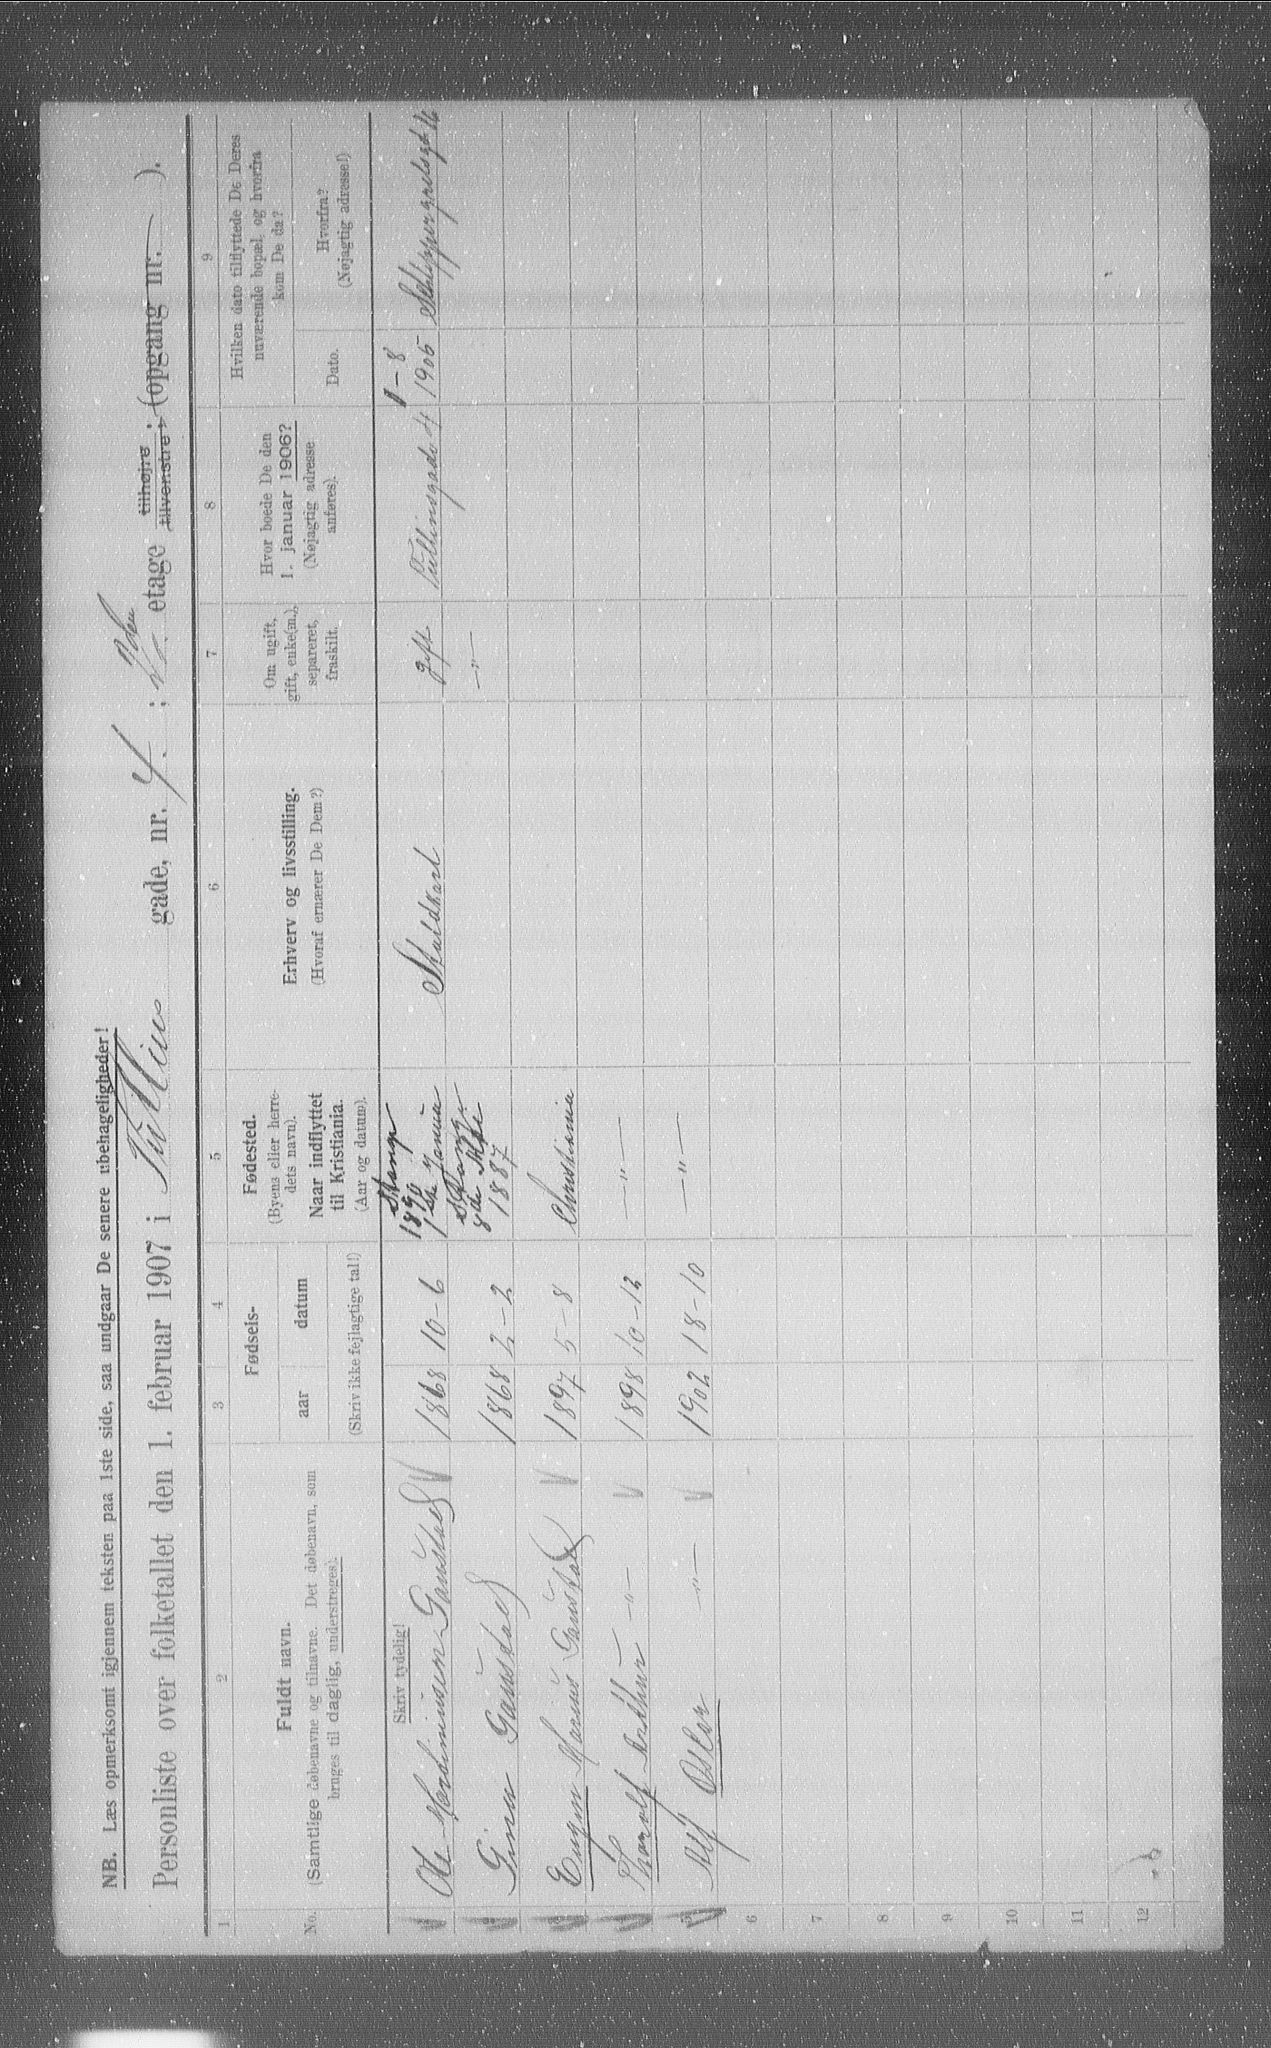 NB. Læs opmerksomt igjennem teksten paa 1ste side, saa undgaar De senere ubehageligheder!
Personliste over folketallet den 1. februar 1907 i Tullins gade, nr. 4. ; 2den etage tilhøjre tilvenstre ; (opgang nr. — ).
1 2 3 4 5 6 7 8 9
No.
Fuldt navn.
(Samtlige døbenavne og tilnavne. Det døbenavn, som
bruges til daglig, understreges).
Fødsels-
aar datum
(Skriv ikke fejlagtige tal!)
Fødested.
(Byens eller herre-
dets navn).
Naar indflyttet
til Kristiania.
(Aar og datum).
Erhverv og livsstilling.
(Hvoraf ernærer De Dem?)
Om ugift,
gift, enke(m.),
separeret,
fraskilt.
Hvor boede De den
1. januar 1906?
(Nøjagtig adresse
anføres).
Hvilken dato tilflyttede De Deres
nuværende bopæl, og hvorfra
kom De da?
Dato.
Hvorfra?
(Nøjagtig adresse!)
Skriv tydelig!
Ole Gausdael 1868 10-6 Stange 1890 Staldkarl gift Tullinsgade 4 1-8 1905 16
Gina Gausdael 1868 2-2 1887 —"—
Eugen Marius Gausdael 1897 5-8 Christiania
Thoralf Arthur —"— 1898 10-12 —"—
5 Alf Oskar —"— 1902 18-10 —"—
6
7
8
9
10
11
12